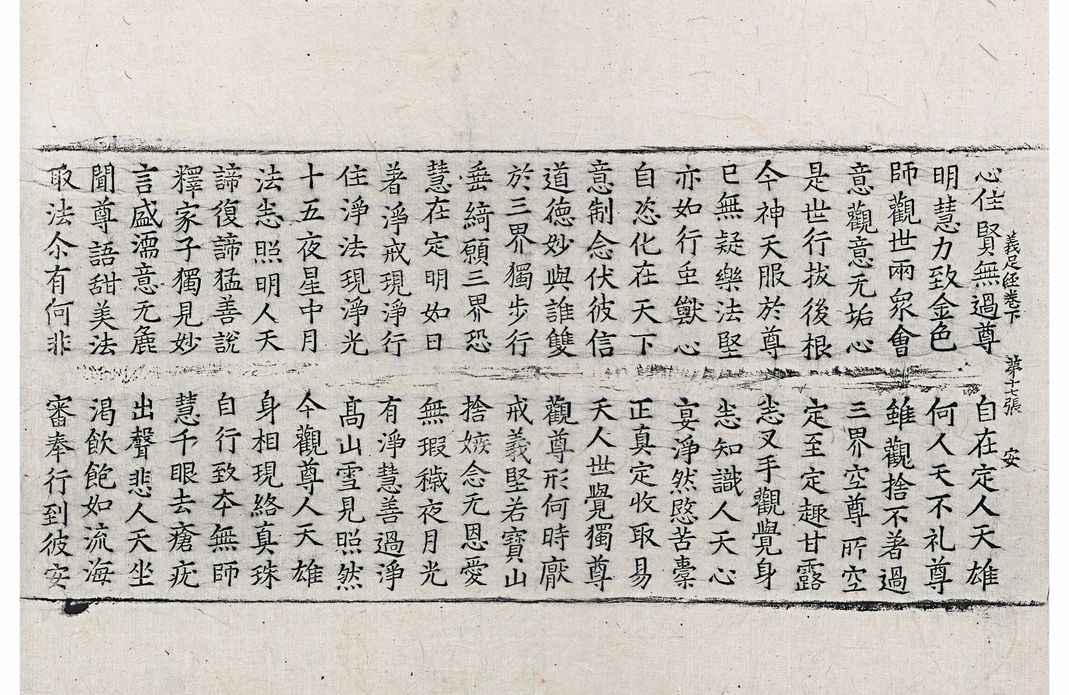 義足経卷下　第十七張　安
心住賢無過尊　自在定人天雄
明慧力致金色　何人天不礼尊
師觀世兩衆會　雖觀捨不著過
意觀意无垢心　三界空尊所空
是世行拔後根　定至定趣甘露
今神天服於尊　悉叉手觀覺身
已無疑樂法堅　悉知識人天心
亦如行虫獸心　宴淨然愍苦橐
自恣化在天下　正真定收取易
意制念伏彼信　天人世覺獨尊
道德妙與誰雙　觀尊形何時厭
於三界獨步行　戒義堅若寶山
垂綺願三界恐　捨嫉念无恩愛
慧在定明如日　無瑕穢夜月光
著淨戒現淨行　有淨慧善過淨
住淨法現淨光　高山雪見照然
十五夜星中月　今觀尊人天雄
法悉照明人天　身相現絡真珠
諦復諦猛善說　自行致夲無師
釋家子獨見妙　慧千眼去瘡疣
言盛濡意无麁　出聲悲人天坐
聞尊語甜美法　渴飲飽如流海
取法尒有何非　審奉行到彼安